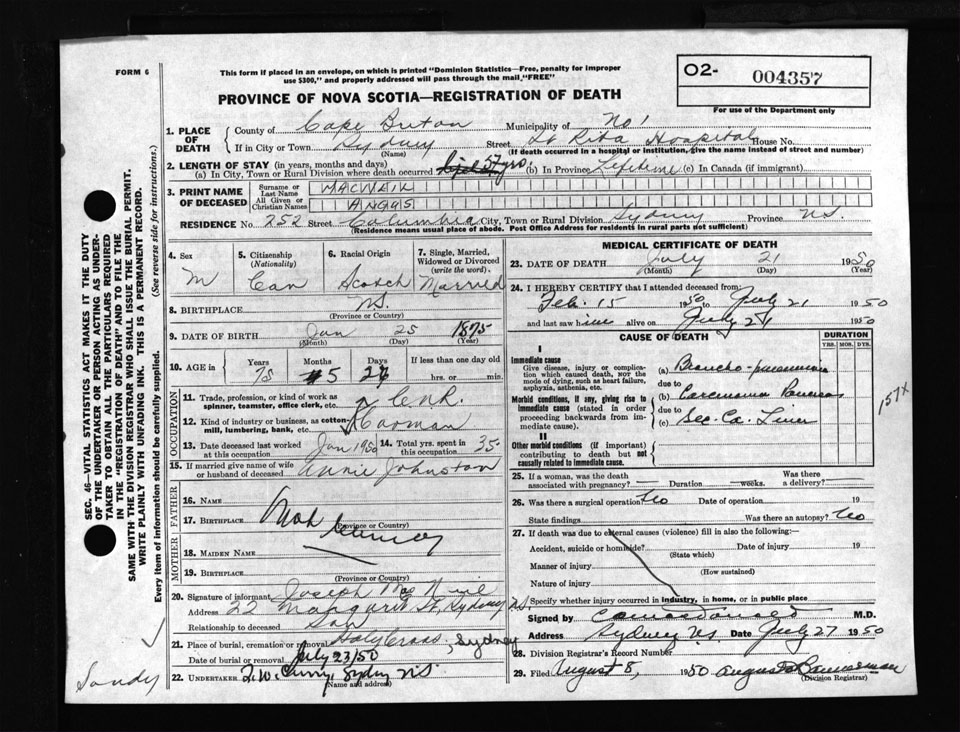 FORM 6
This form if placed in an envelope, on which is printed "Dominion Statistics—Free, penalty for improper
use $300," and properly addressed will pass through the mail, "FREE"
O2- 004357
For use of the Department only
PROVINCE OF NOVA SCOTIA—REGISTRATION OF DEATH
1. PLACE OF DEATH
County of Cape Breton Municipality of No 1
If in City or Town Sydney Street St Rita Hospital House No.
(Name) (If death occurred in a hospital or institution, give the name instead of street and number)
2. LENGTH OF STAY (in years, months and days)
(a) In City, Town or Rural Division where death occurred 57 yrs. (b) In Province Lifetime (c) In Canada (if immigrant)
3. PRINT NAME OF DECEASED
Surname or Last Name MACNEIL
All Given or Christian Names ANGUS
RESIDENCE No. 252 Street Columbia City, Town or Rural Division Sydney Province N.S.
(Residence means usual place of abode. Post Office Address for residents in rural parts not sufficient)
4. Sex M
5. Citizenship (Nationality) Can
6. Racial Origin Scotch
7. Single, Married, Widowed or Divorced (write the word). Married
8. BIRTHPLACE N.S.
(Province or Country)
9. DATE OF BIRTH Jan 25 1875
(Month) (Day) (Year)
10. AGE in Years 75 Months 5 Days 26 If less than one day old
hrs. or min.
OCCUPATION
11. Trade, profession or kind of work as spinner, teamster, office clerk, etc. C.N.R.
12. Kind of industry or business, as cotton-mill, lumbering, bank, etc. Carman
13. Date deceased last worked at this occupation Jan 1950 14. Total yrs. spent in this occupation 35
15. If married give name of wife or husband of deceased Annie Johnston
FATHER
16. Name
17. BIRTHPLACE
(Province or Country)
MOTHER
18. MAIDEN NAME
19. BIRTHPLACE
(Province or Country)
20. Signature of informant Joseph Mac Neil
Address 22 Margaret St, Sydney N.S.
Relationship to deceased Son
21. Place of burial, cremation or removal Holy Cross, Sydney
Date of burial or removal July 23/50
22. UNDERTAKER F.W. Curry, Sydney NS
(Name and address)
MEDICAL CERTIFICATE OF DEATH
23. DATE OF DEATH July 21 1950
(Month) (Day) (Year)
24. I HEREBY CERTIFY that I attended deceased from:
Feb. 15 1950 to July 21 1950
and last saw him alive on July 21 1950
CAUSE OF DEATH
DURATION
YRS. MOS. DYS.
I
Immediate cause
Give disease, injury or complication which caused death, NOT the mode of dying, such as heart failure, asphyxia, asthenia, etc.
(a) Broncho-pneumonia
due to
Morbid conditions, if any, giving rise to immediate cause (stated in order proceeding backwards from immediate cause).
(b) Carcinoma Pancreas
due to
(c) Sec. Ca. Liver
157x
II
Other morbid conditions (if important) contributing to death but not causally related to immediate cause.
25. If a woman, was the death associated with pregnancy? Duration weeks. Was there a delivery?
26. Was there a surgical operation? No Date of operation 19
State findings Was there an autopsy? No
27. If death was due to external causes (violence) fill in also the following:—
Accident, suicide or homicide? Date of injury 19
(State which)
Manner of injury
(How sustained)
Nature of injury
Specify whether injury occurred in industry, in home, or in public place
Signed by M.D.
Address Sydney NS Date July 27 1950
28. Division Registrar's Record Number
29. Filed August 8, 1950
(Division Registrar)
SEC. 46—VITAL STATISTICS ACT MAKES IT THE DUTY
OF THE UNDERTAKER OR PERSON ACTING AS UNDER-
TAKER TO OBTAIN ALL THE PARTICULARS REQUIRED
IN THE "REGISTRATION OF DEATH" AND TO FILE THE
SAME WITH THE DIVISION REGISTRAR WHO SHALL ISSUE THE BURIAL PERMIT.
WRITE PLAINLY WITH UNFADING INK. THIS IS A PERMANENT RECORD.
Every item of information should be carefully supplied. (See reverse side for instructions.)
Sandy